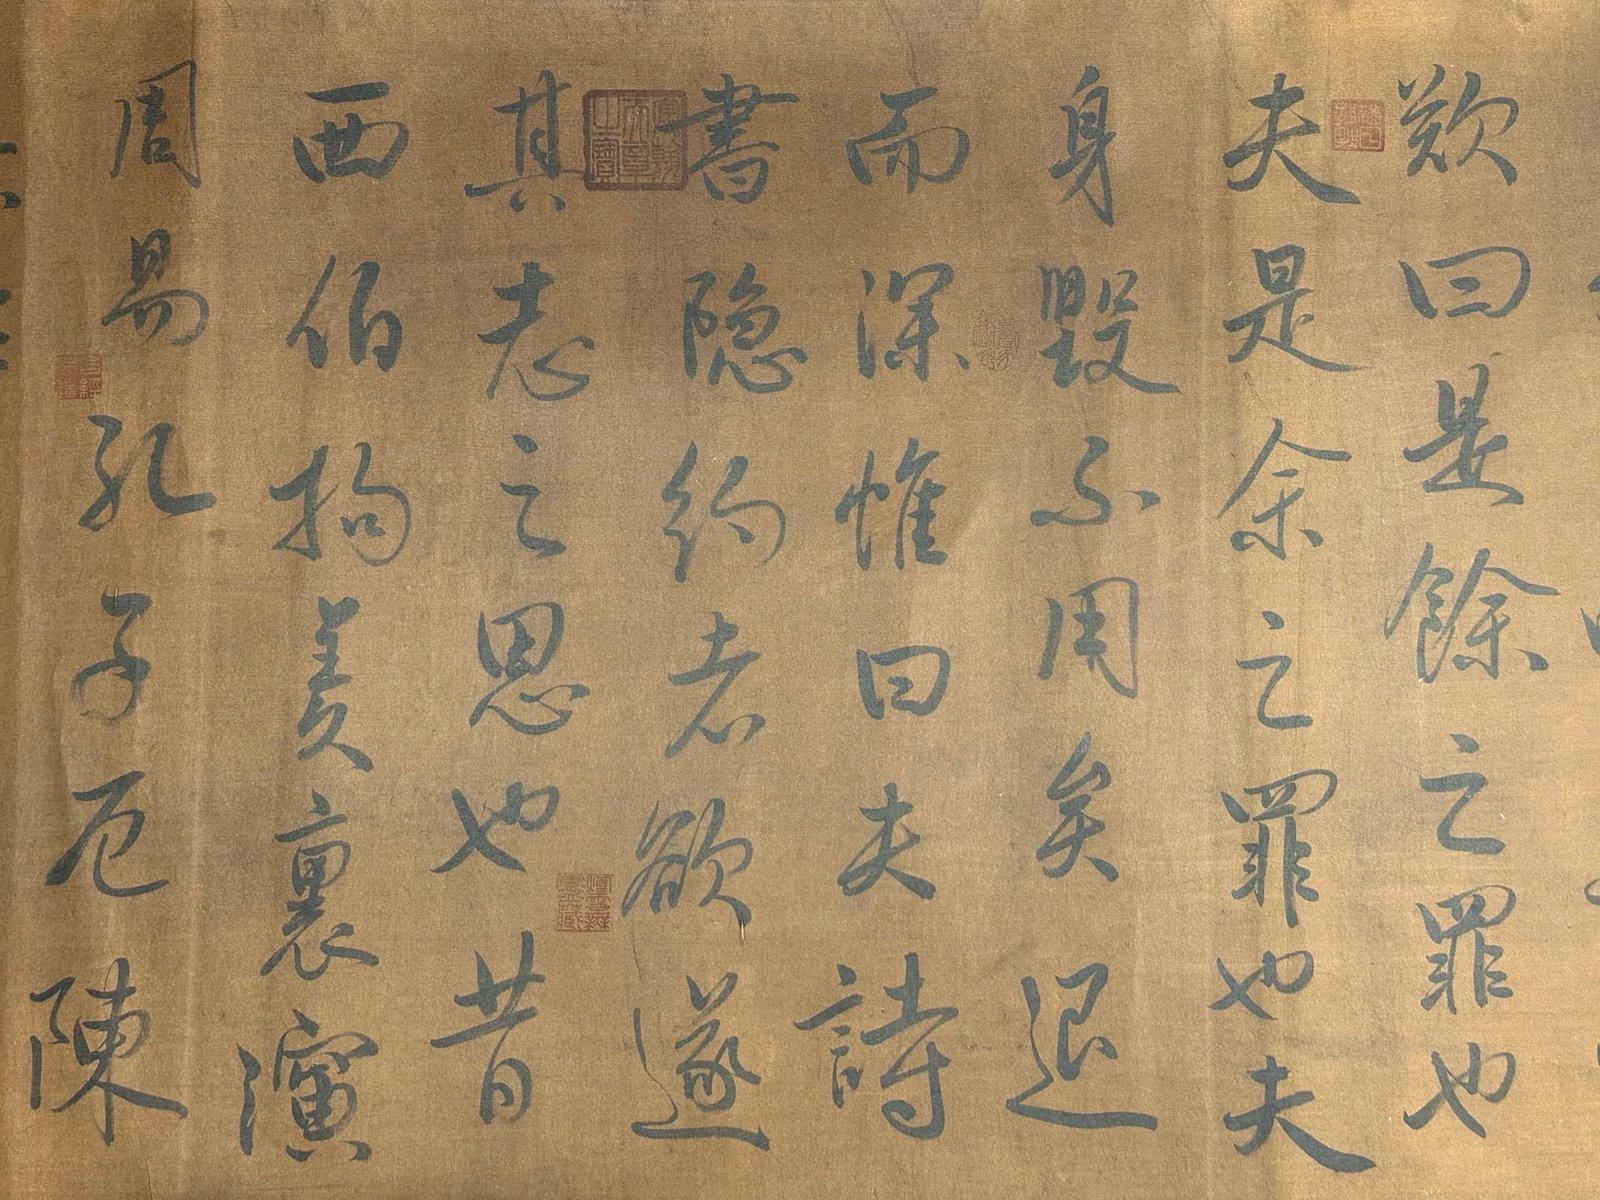 歎曰是餘之罪也
夫是余之罪也夫
身毀不用矣退
而深惟曰夫詩
書隐約者欲遂
其志之思也昔
西伯拘羑裏演
周易孔子厄陳